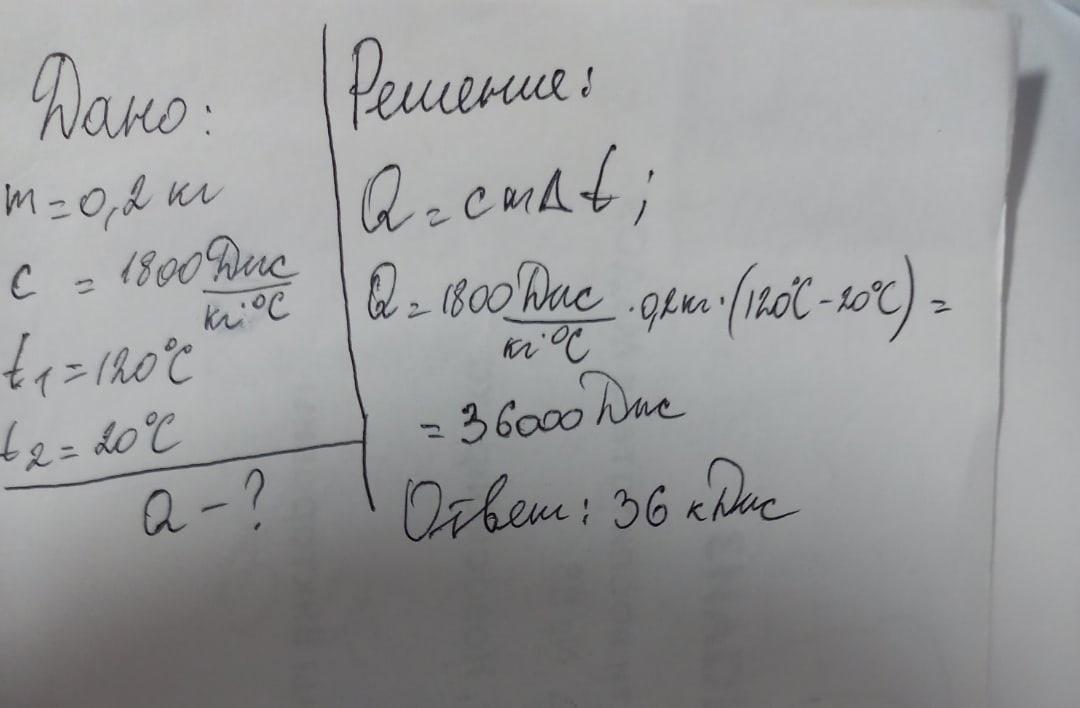 Дано:
m = 0,2 кг
c = 1800 Дж/кг·°C
t₁ = 120°C
t₂ = 20°C
Q - ?
Решение:
Q = cmΔt;
Q = 1800 Дж/кг·°C · 0,2 кг · (120°C - 20°C) =
= 36000 Дж
Ответ: 36 кДж